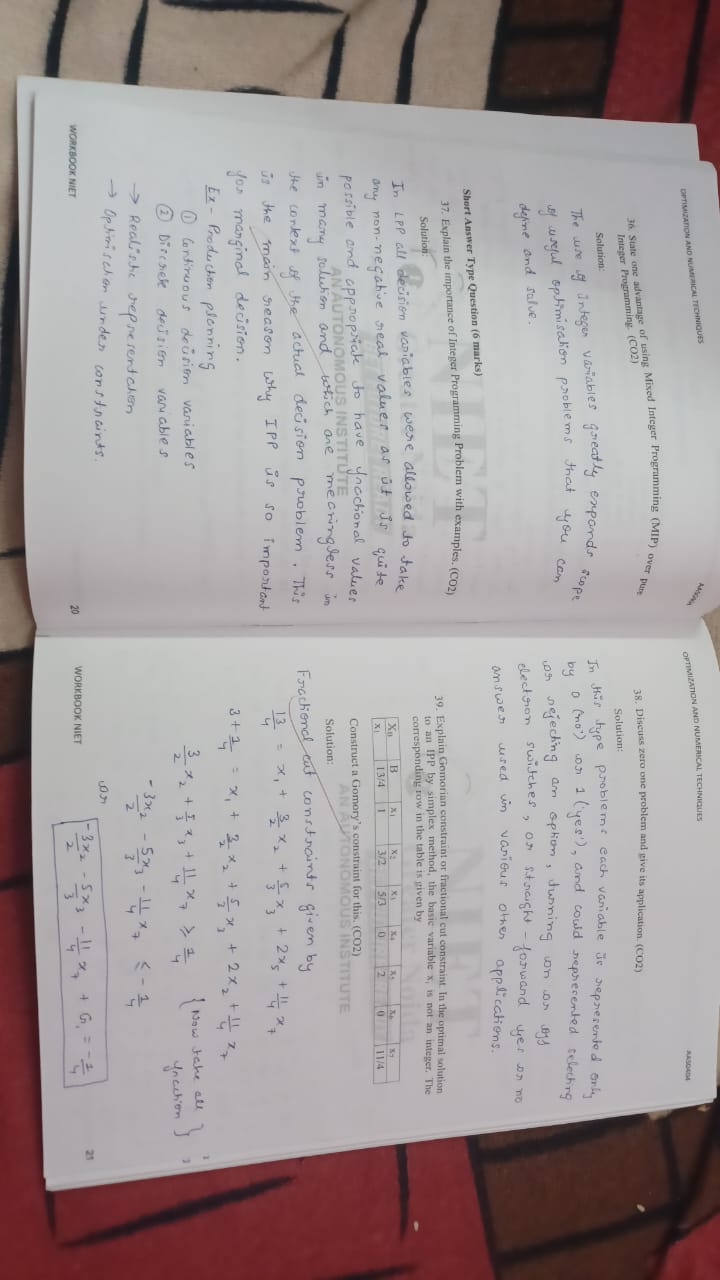 OPTIMIZATION AND NUMERICAL TECHNIQUES
36. State one advantage of using Mixed Integer Programming (MIP) over Pure
Integer Programming. (CO2)
Solution:
The use of integer variables greatly expands scope
of useful optimisation problems that you can
define and solve.
Short Answer Type Question (6 marks)
37. Explain the importance of Integer Programming Problem with examples. (CO2)
Solution:
In LPP all decision variables were allowed to take
any non-negative real values as it is quite
possible and appropriate to have fractional values
AN AUTONOMOUS INSTITUTE
in many solution and which are meaningless in
the context of the actual decision problem. This
is the main reason why IPP is so important
for marginal decision.
Ex - Production planning
① Continuous decision variables
② Discrete decision variables
→ Realistic representation
→ Optimisation under constraints.
WORKBOOK NIET
20
OPTIMIZATION AND NUMERICAL TECHNIQUES
38. Discuss zero one problem and give its application. (CO2)
Solution:
In this type problems each variable is represented only
by 0 (no') or 1 ('yes'), and could represented selecting
or rejecting an option, turning on or off
electron switches, or straight-forward yes or no
answer used in various other applications.
39. Explain Gomorian constraint or fractional cut constraint. In the optimal solution
to an IPP by simplex method, the basic variable x₁ is not an integer. The
corresponding row in the table is given by
X_B B x₁ x₂ x₃ x₄ x₅ x₆ x₇
x₁ 13/4 1 3/2 5/3 0 2 0 11/4
Construct a Gomory's constraint for this. (CO2)
AN AUTONOMOUS INSTITUTE
Solution:
Fractional cut constraints given by
13/4 = x₁ + 3/2 x₂ + 5/3 x₃ + 2x₅ + 11/4 x₇
3 + 1/4 = x₁ + 3/2 x₂ + 5/3 x₃ + 2x₂ + 11/4 x₇
3/2 x₂ + 5/3 x₃ + 11/4 x₇ ≥ 1/4 { Now take all fraction }
-3x₂/2 - 5x₃/3 - 11/4 x₇ ≤ -1/4
or
-3x₂/2 - 5x₃/3 - 11/4 x₇ + G₁ = -1/4
WORKBOOK NIET
21